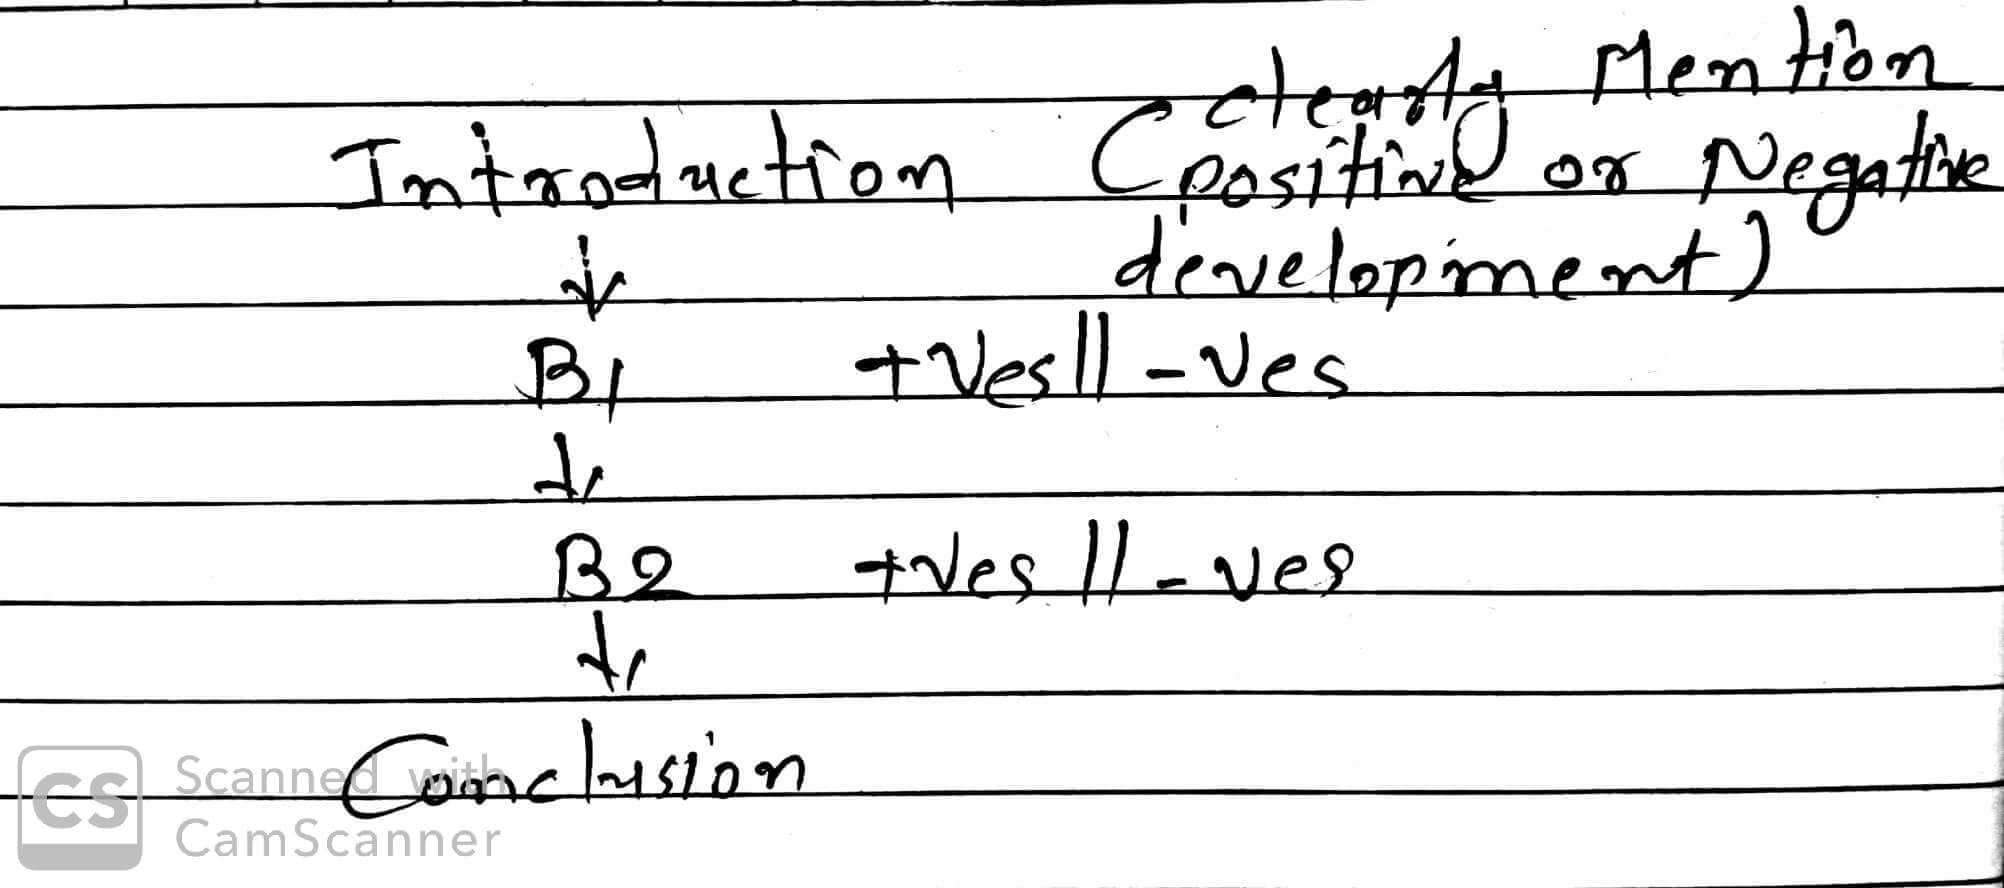 clearly Mention
Introduction (positive or Negative
development)
↓
B1 +ves || -ves
↓
B2 +ves || -ves
↓
Conclusion
CS Scanned with
CamScanner